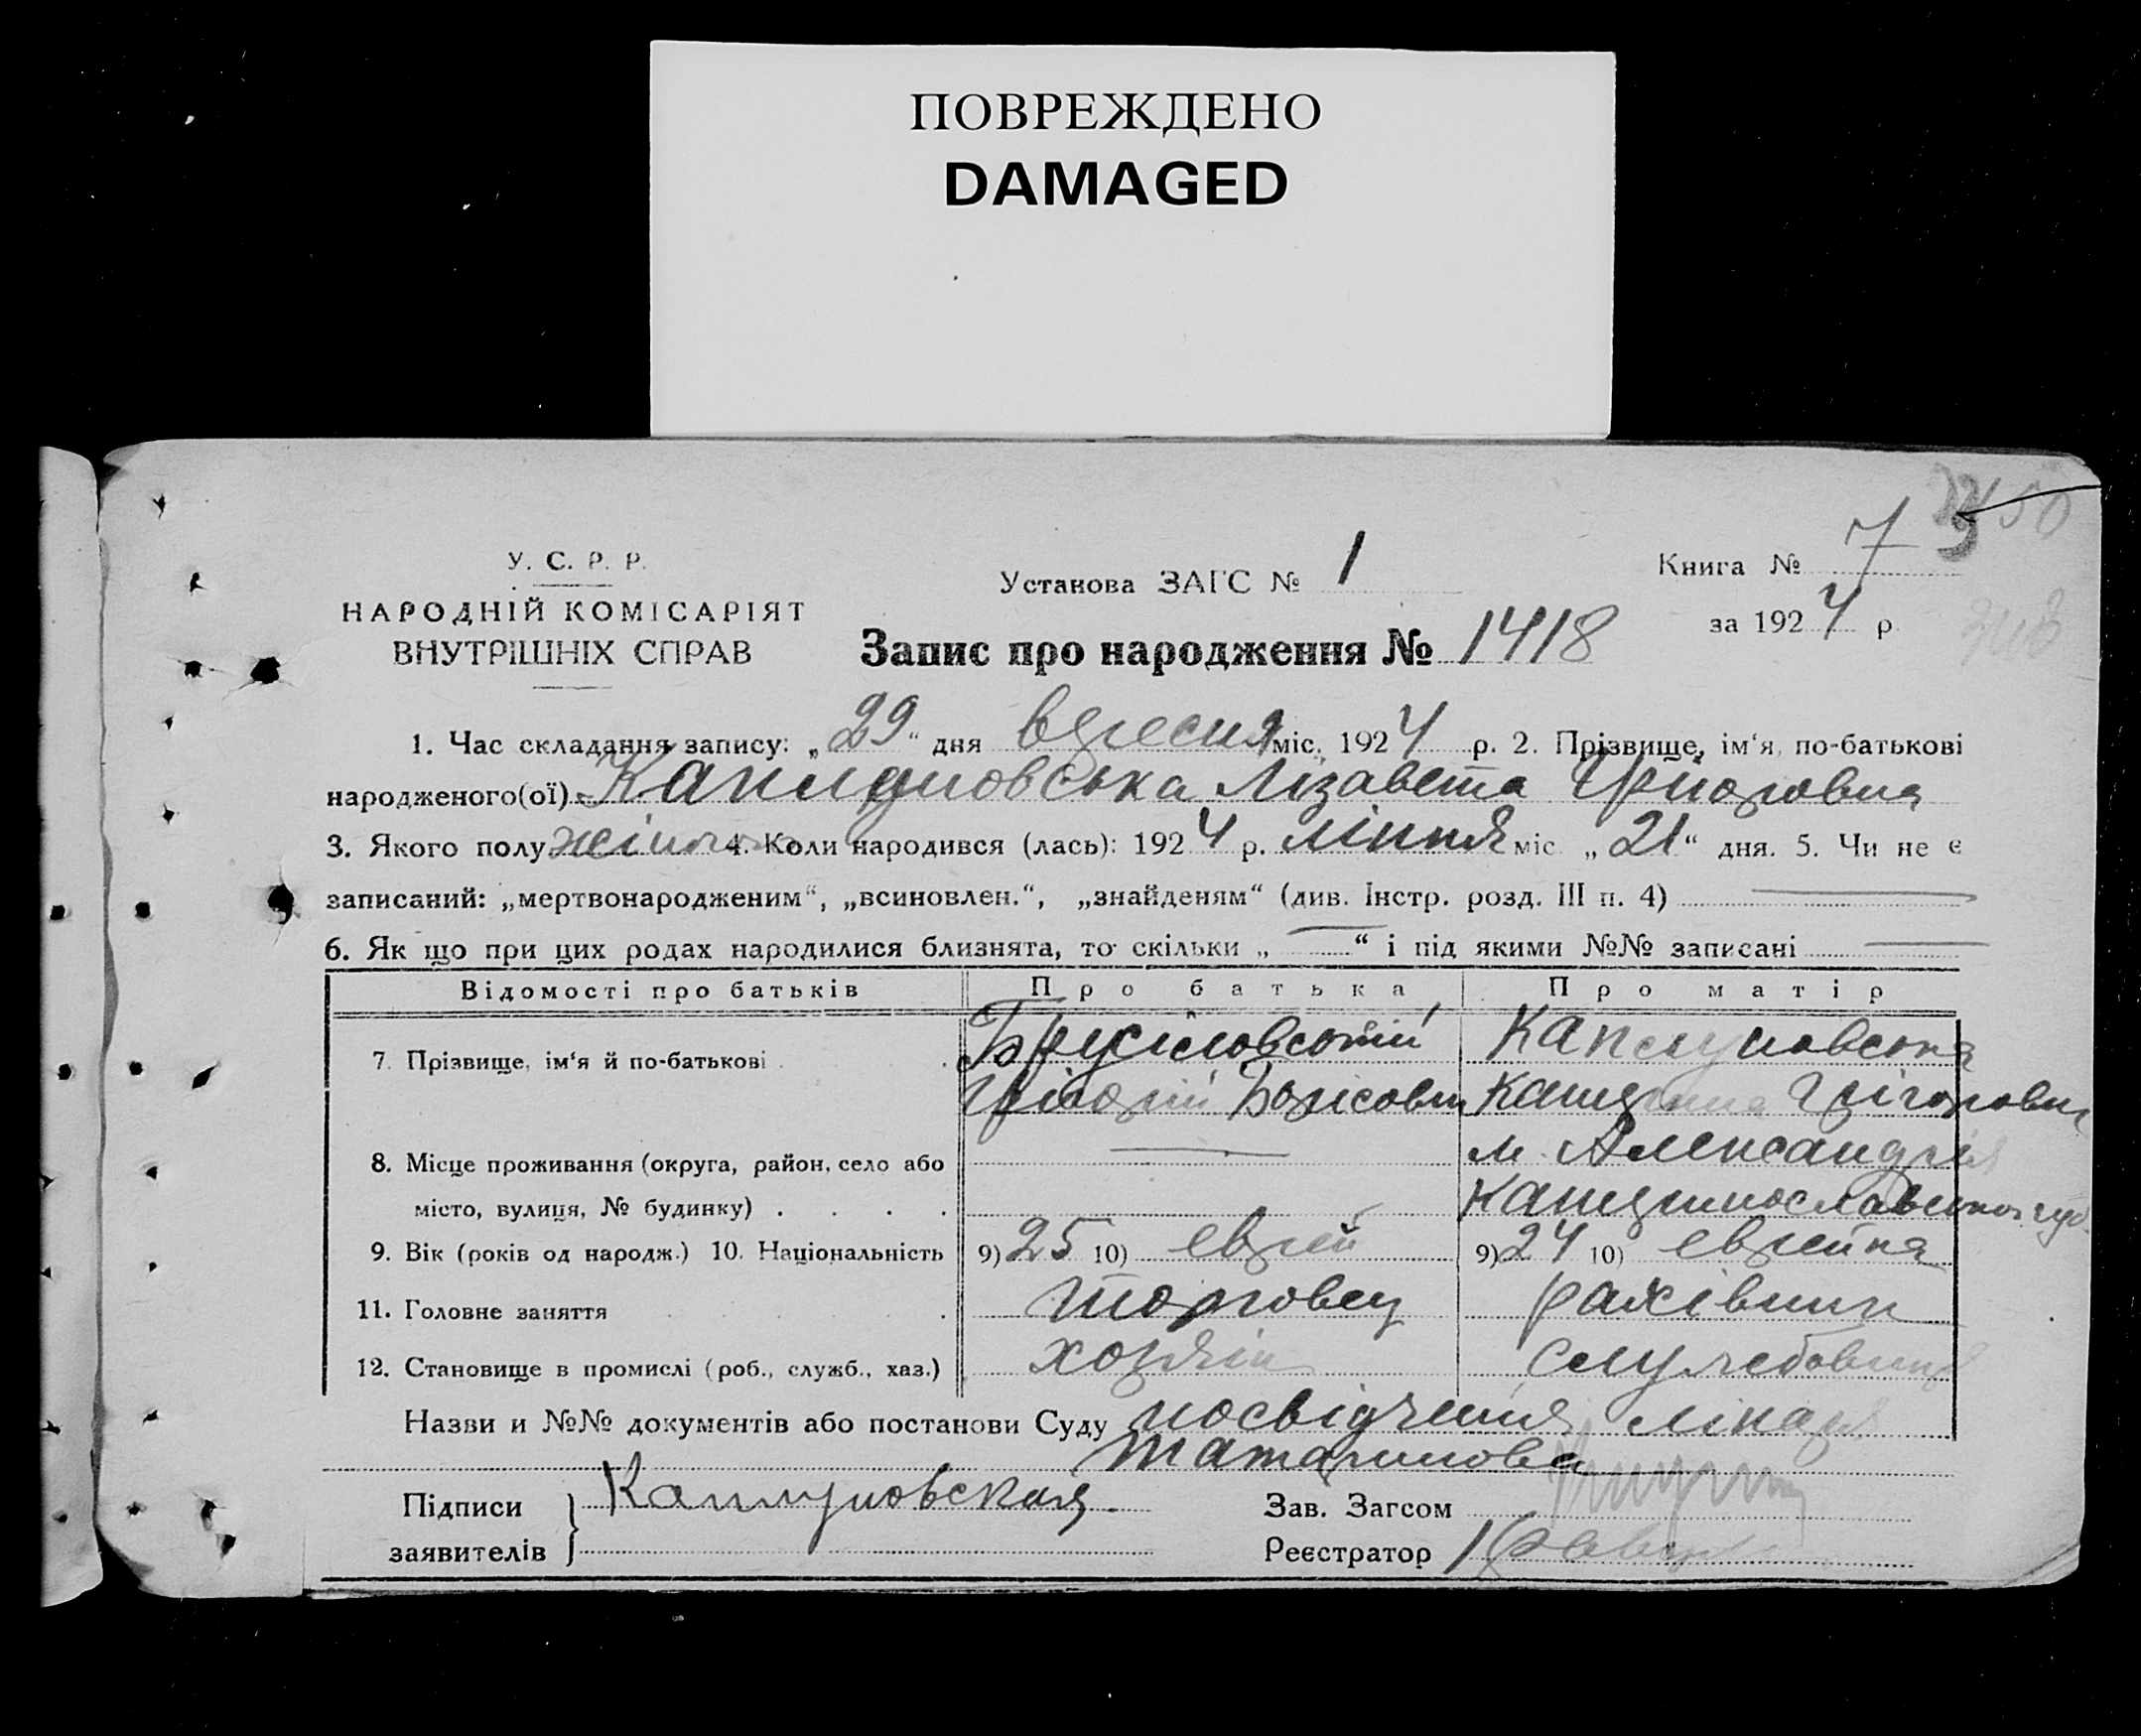 ПОВРЕЖДЕНО
DAMAGED
У. С. Р. Р.
НАРОДНІЙ КОМІСАРІЯТ
ВНУТРІШНІХ СПРАВ
Установа ЗАГС № 1
Книга № 7
за 1924 р.
Запис про народження № 1418
1. Час складання запису: „29“ дня вересня міс. 1924 р. 2. Прізвище, ім‘я, по-батькові
народженого(ої) Лізавета
3. Якого полу жіноч 4. Коли народився (лась): 1924 р. ліпня міс „21“ дня. 5. Чи не є
записаний: „мертвонародженим“, „всиновлен.“, „знайденям“ (див. Інстр. розд. III п. 4)
6. Як що при цих родах народилися близнята, то скільки „ — “ і під якими №№ записані —
Відомості про батьків Про батька Про матір
7. Прізвище, ім‘я й по-батькові
Борісович
8. Місце проживання (округа, район, село або м. Александрія
місто, вулиця, № будинку)
9. Вік (років од народж.) 10. Національність 9) 25 10) еврей 9) 24 10) еврейка
11. Головне заняття торговец рахівник
12. Становище в промислі (роб., служб., хаз.) хозяін
Назви и №№ документів або постанови Суду посвідчення лікаря
Татаринова
Підписи Каплуновская. Зав. Загсом
заявителів Реєстратор